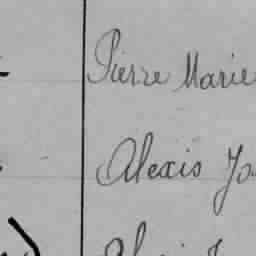 Pierre Marie
Alexis